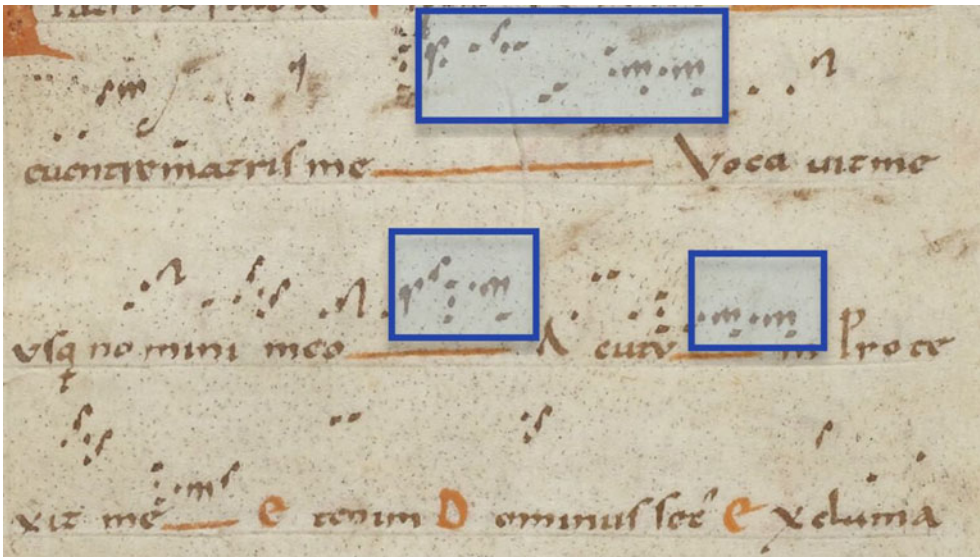 euentre matris me Voca uit me
usq nomini meo A cutu m Pro te
xit me e tenim D ominus ser e xclama